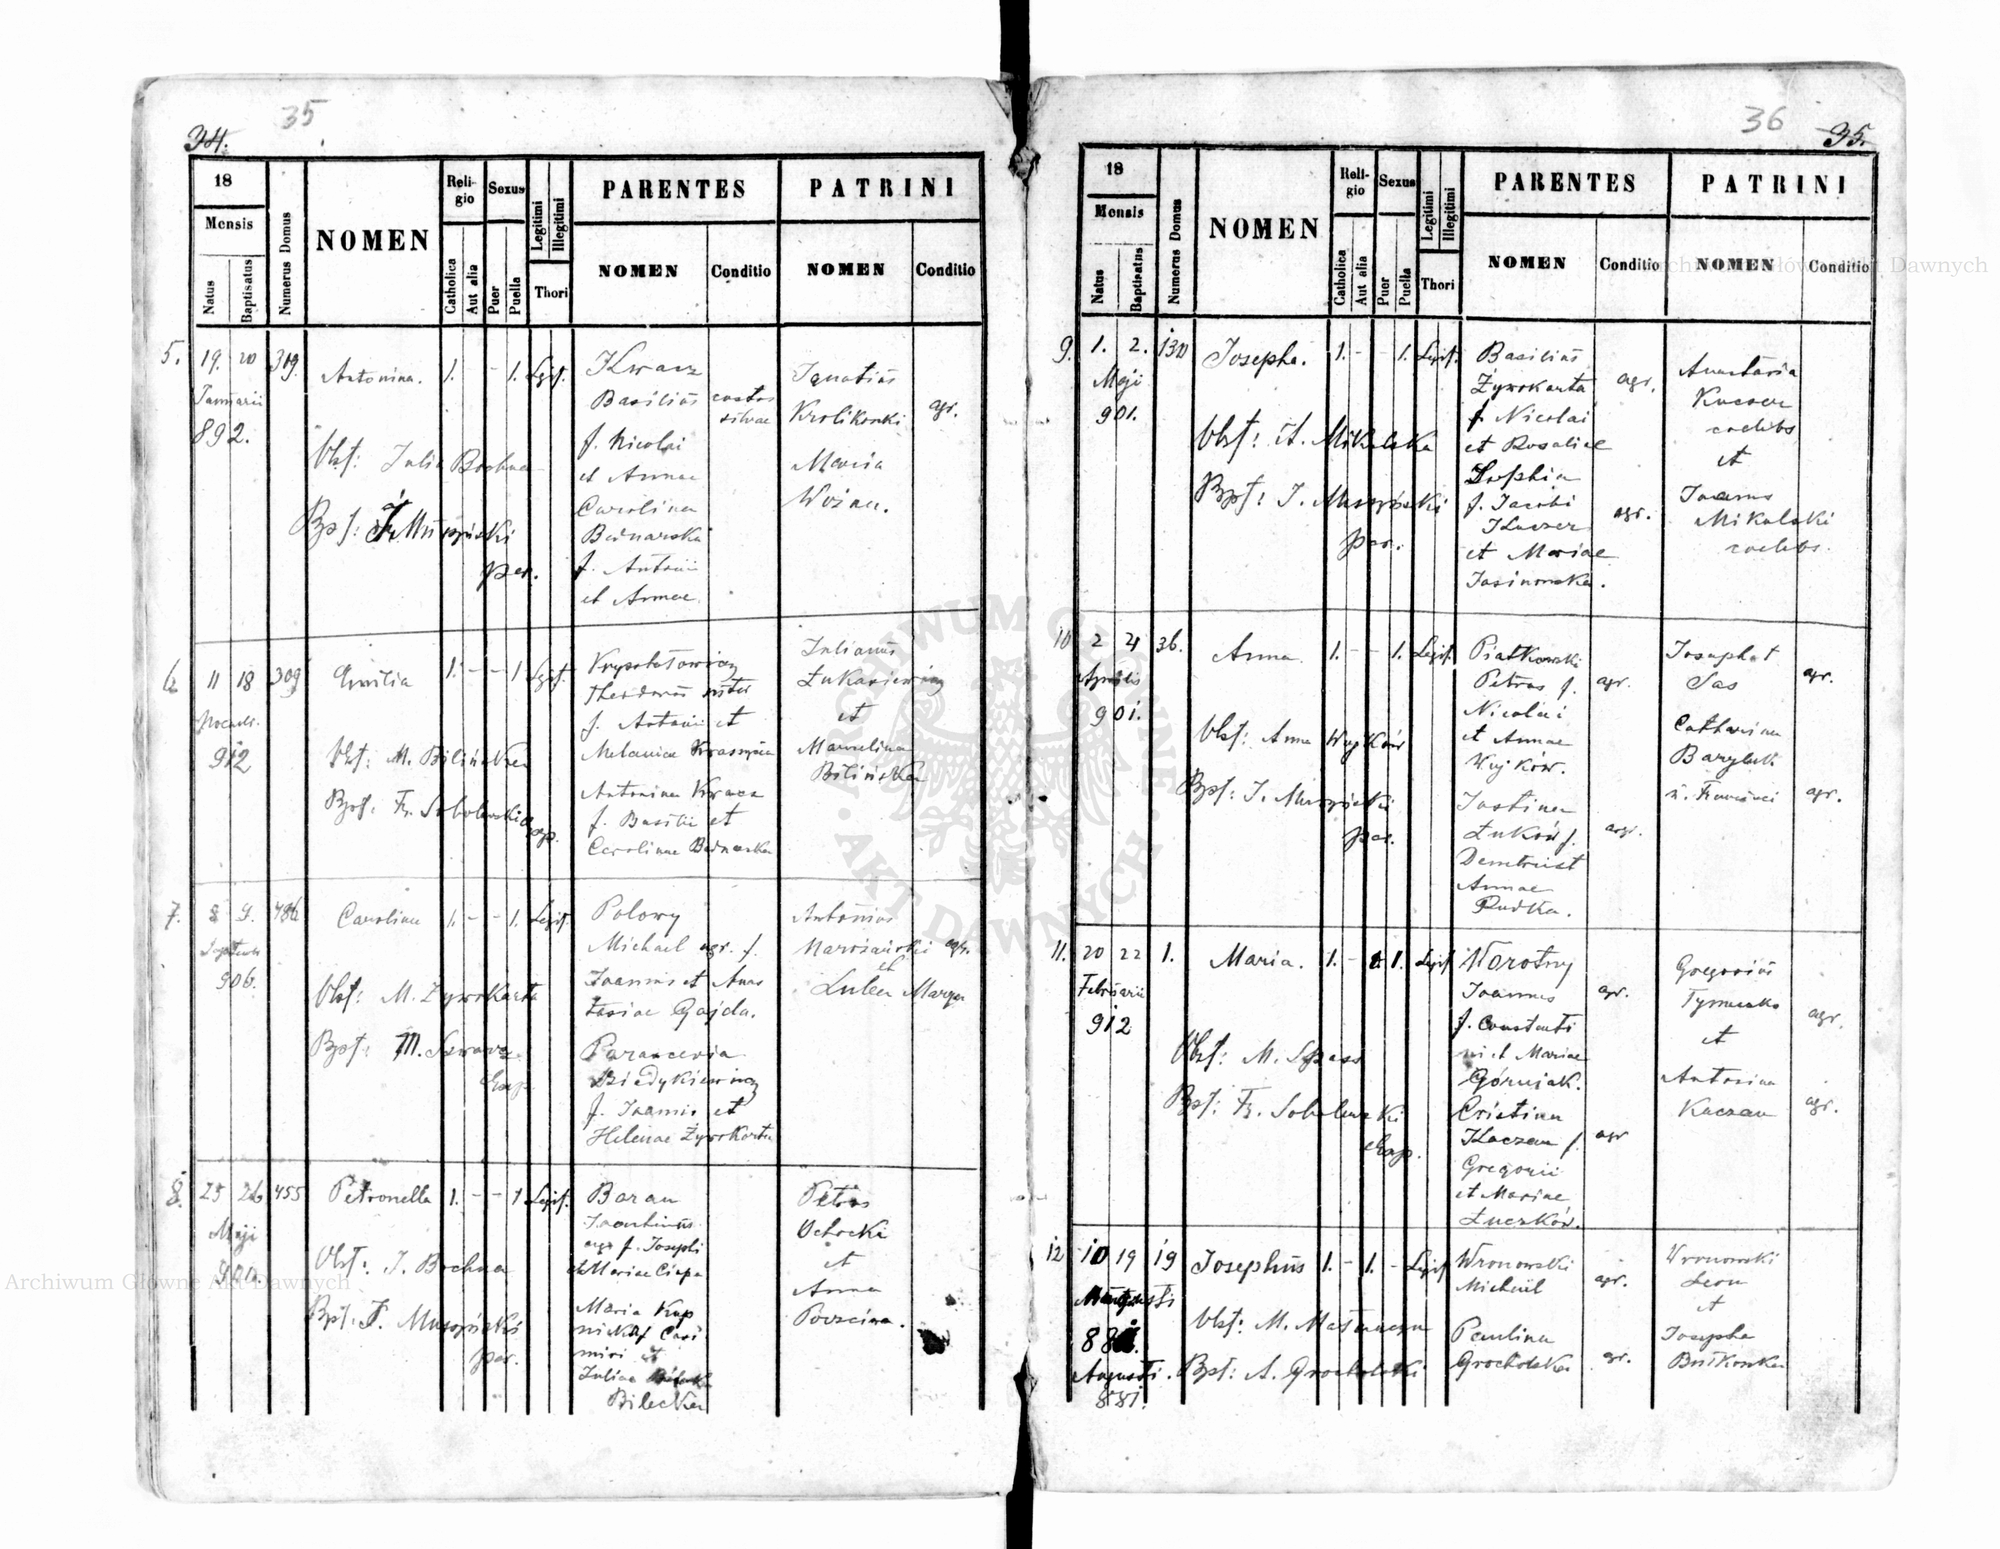 35
34.
18
Mensis
Natus
Baptisatus
Numerus Domus
NOMEN
Reli-
gio
Catholica
Aut alia
Sexus
Puer
Puella
Legitimi
Illegitimi
Thori
PARENTES
NOMEN
Conditio
PATRINI
NOMEN
Conditio
5. 19. 20 309. Antonina. 1. - - 1. Legit.
Januarii
892.
Obst: Julia Bochna
Bpt:
par.
Kwacz
Basilius custos
silvae
f. Nicolai
et Annae
Carolina
Bednarska
f. Antonii
et Annae
Ignatius
Krolikowski agr.
Maria
Woźna.
6. 11 18 309 Emilia 1. - - 1 Legit.
912
Obst: M. Bilińska
Bpt: Fr. Sobolewski exp.
Krysztofowicz
Theodorus
f. Antonii et
Melaniae
Antonina Kwacz
f. Basilii et
Carolinae Bednarska
Julianus
Łukasiewicz
et
Marcelina
Bilińska
7. 8 9. 486 Carolina 1. - - 1. Legit.
906.
Obst: M. Żywokarta
Bpt: M.
Polowy
Michael agr. f.
Joannis et Anas
tasiae Gajda.
Parascevia
Dziedykiewicz
f. Joannis et
Helenae Żywokarta
Antonius
agr.
et
8. 25 26 455 Petronella 1. - - 1 Legit.
Maji
900.
Obst: J. Bochna
Bpt: J.
par.
Baran
agr. f. Josephi
et Mariae
Maria Kop
nicka f. Casi
miri et
Juliae
Bilecka
Petrus
et
Anna
36
35.
18
Mensis
Natus
Baptisatus
Numerus Domus
NOMEN
Reli-
gio
Catholica
Aut alia
Sexus
Puer
Puella
Legitimi
Illegitimi
Thori
PARENTES
NOMEN
Conditio
PATRINI
NOMEN
Conditio
9. 1. 2. 130 Josepha. 1. - - 1. Legit.
Maji
901.
Obst: A. Mikulska
Bpt: J.
par.
Basilius
Żywokarta agr.
f. Nicolai
et Rosaliae
Sophia
f. Jacobi agr.
Kaczor
et Mariae
Jasinowska.
Anastasia
coelebs
et
Joannes
Mikulski
coelebs.
10 2 4 36. Anna 1. - - 1. Legit.
Aprilis
901.
Obst: Anna Wujków
Bpt: J.
par.
Piatkowski
Petrus f. agr.
Nicolai
et Annae
Wujków.
Justina
Łuków f. agr.
Demetrii et
Annae
Rudka.
Josaphat
Sas agr.
Catharina
Baryluk
u. Francisci agr.
11. 20 22 1. Maria. 1. - 1. Legit
Februarii
912
Obst: M. Spass
Bpt: Fr. Sobolewski
exp.
Worotny
Joannes agr.
f. Constanti
ni et Mariae
Górniak.
Cristina
Kaczan f. agr
Gregorii
et Mariae
Łuczków.
Gregorius
agr.
et
Antonina
Kaczan agr.
12 10 19 19 Josephus 1. - 1. - Legit
Augusti
881.
Obst: M.
Bpt: A. Grocholski
Wronowski
Michael agr.
Paulina
Grocholska gr.
Wronowski
Leon
et
Josepha
Archiwum Główne Akt Dawnych
Archiwum Główne Akt Dawnych
ARCHIWUM GŁÓWNE
AKT DAWNYCH